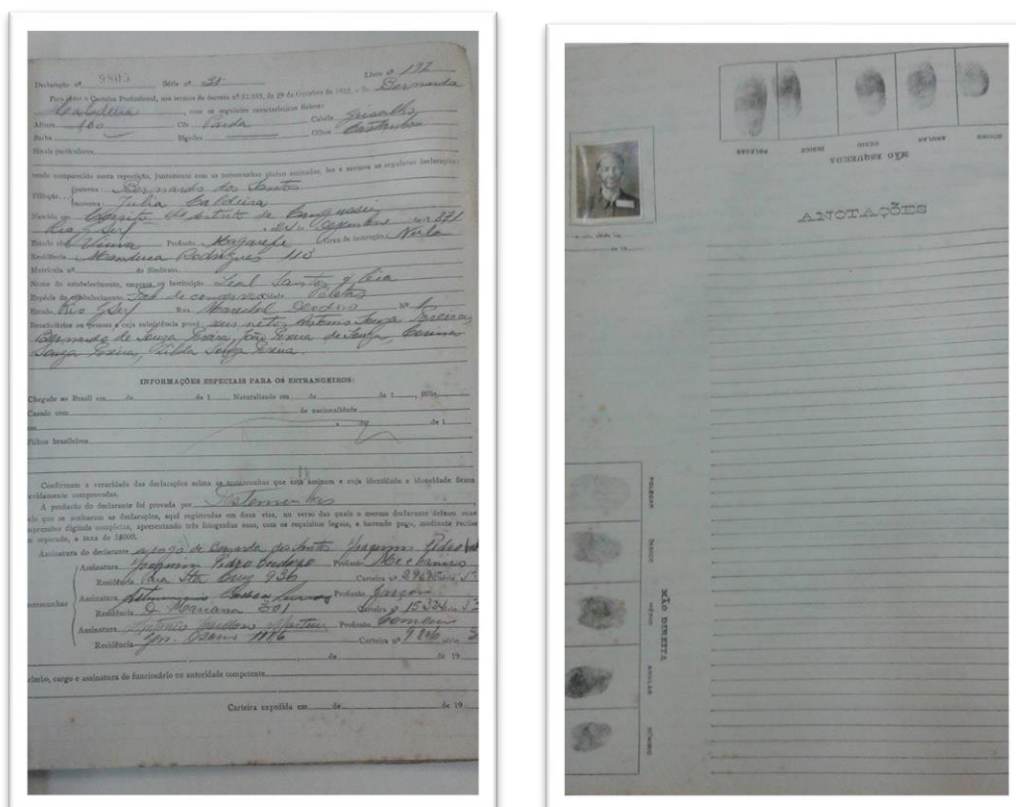 Declaração nº 9805 Série nº 38 Livro nº 192
Para obter a Carteira Profissional, nos termos do decreto nº 22.035, de 29 de Outubro de 1932, a Sr. Bernarda
Caldeira, com os seguintes característicos físicos:
Altura 160 Côr Parda Cabelo grisalho
Barba Bigodes Olhos Castanhos
Sinais particulares
tendo comparecido nesta repartição, juntamente com as testemunhas abaixo assinadas, fez e assinou as seguintes declarações:
Filiação paterna: Bernardo dos Santos
materna: Julia Caldeira
Nascido em distrito de
Rio G Sul de 1871
Estado civil Viuva Profissão Magarefe Grau de instrução Nula
Residência Manduca Rodrigues 113
Matrícula nº do Sindicato
Nome do estabelecimento, empresa ou instituição Leal Santos & Cia
Espécie do estabelecimento Fab de conservas Cidade Pelotas
Estado Rio G Sul Rua Marechal Deodoro Nº 1
Beneficiários ou pessoas a cuja subsistência provê seus netos Antonio Souza
Bernardo de Souza João de Souza
Souza Souza
INFORMAÇÕES ESPECIAIS PARA OS ESTRANGEIROS:
Chegado ao Brasil em de de 1 Naturalizado em de de 1
Casado com de nacionalidade
em a de 1
Filhos brasileiros
Confirmam a veracidade das declarações acima as testemunhas que esta assinam e cuja identidade e idoneidade ficam
devidamente comprovadas.
A profissão do declarante foi provada por Testemunhas
pelo que se aceitaram as declarações, aqui registradas em duas vias, no verso das quais o mesmo declarante deixou suas
impressões digitais completas, apresentando três fotografias suas, com os requisitos legais, e havendo pago, mediante recibo
em separado, a taxa de 5$000.
Assinatura do declarante a rogo de Bernarda dos Santos Joaquim Pedro
Assinatura Joaquim Pedro Profissão Mecanico
Residência Rua Sta Cruz 936 Carteira nº série
Testemunhas Assinatura Profissão Garçon
Residência D Mariana 301 Carteira nº 15324 série
Assinatura Antonio Martins Profissão
Residência Gen. Osorio 1186 Carteira nº 9806 série
de de 19
Carimbo, cargo e assinatura do funcionário ou autoridade competente
Carteira expedida em de de 19
POLEGAR
INDICE
MEDIO
ANULAR
MINIMO
MÃO ESQUERDA
ANOTAÇÕES
POLEGAR
INDICE
MEDIO
ANULAR
MINIMO
MÃO DIREITA